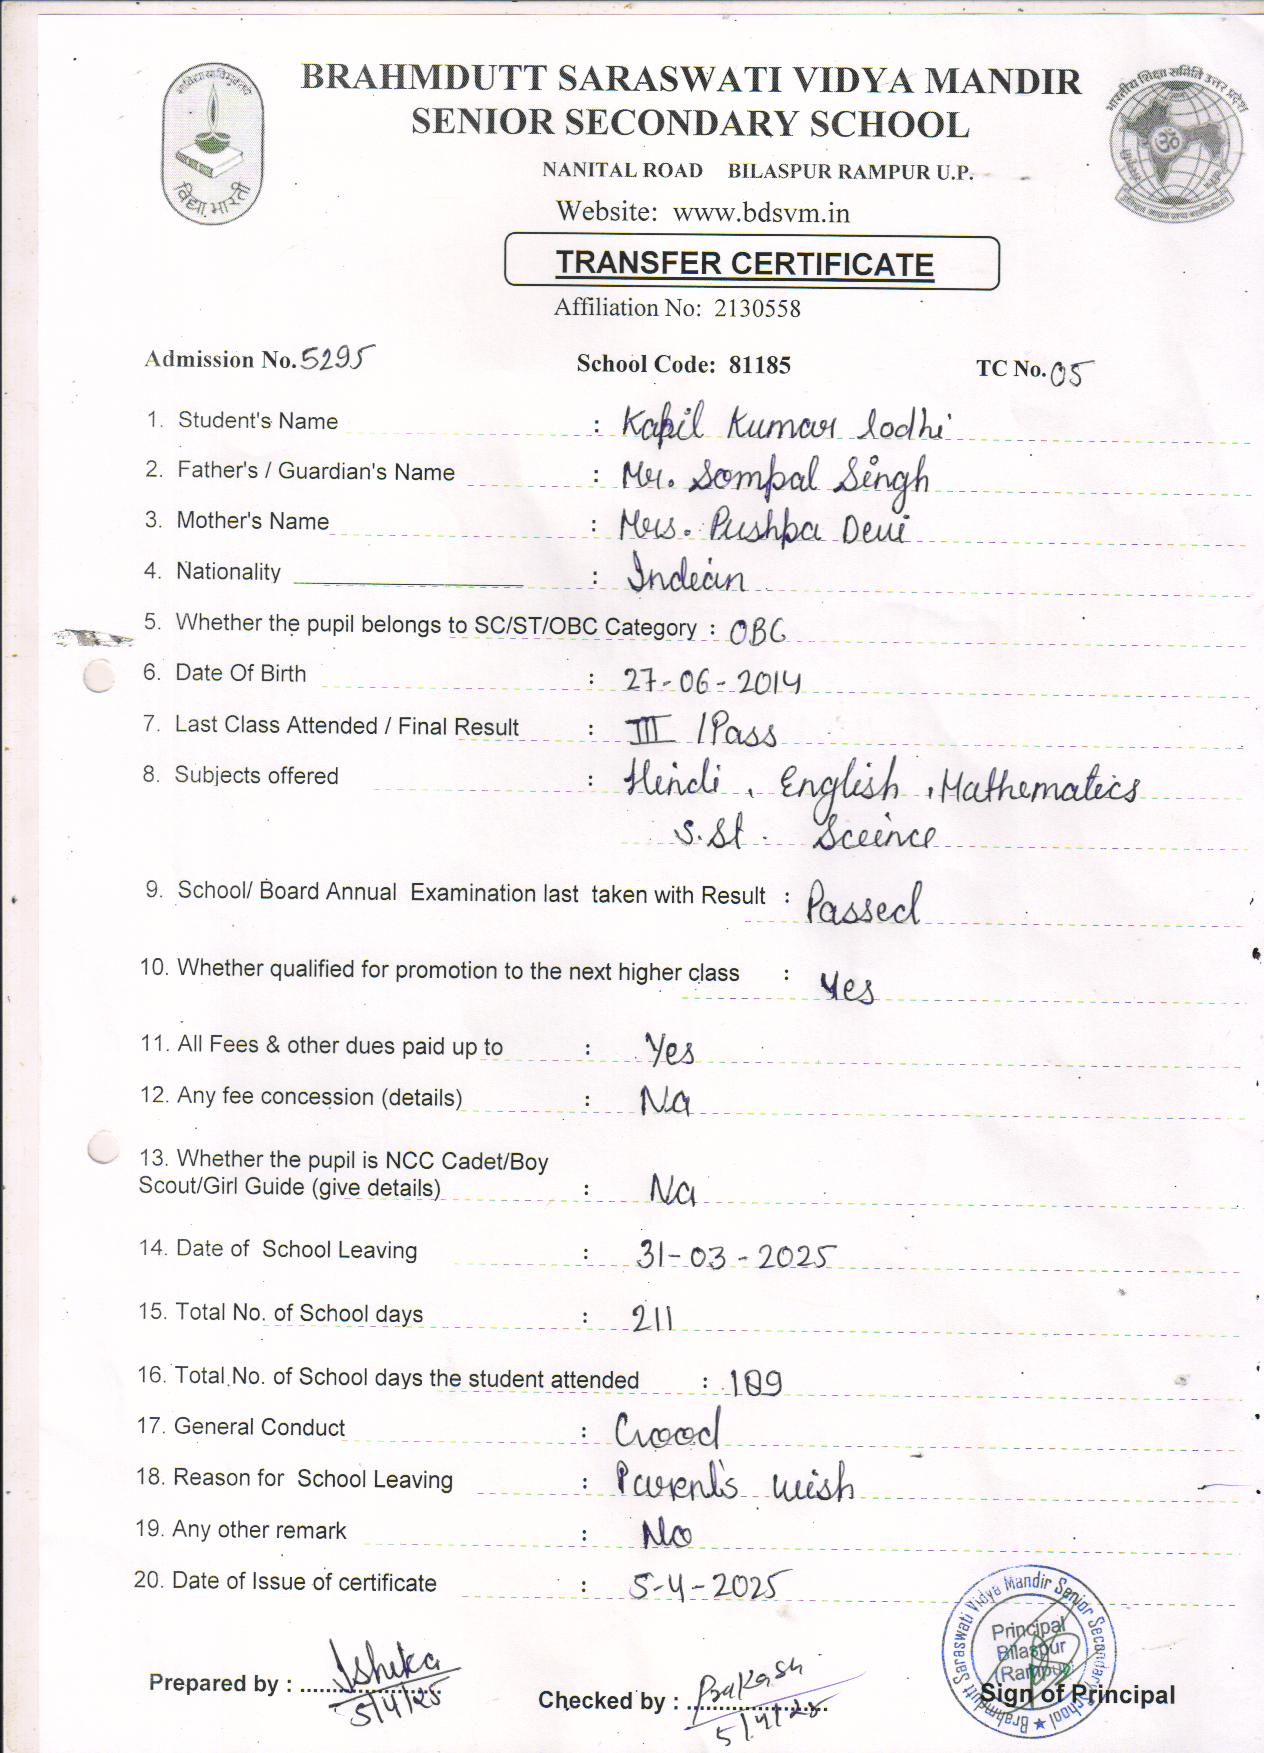 BRAHMDUTT SARASWATI VIDYA MANDIR
SENIOR SECONDARY SCHOOL
NANITAL ROAD BILASPUR RAMPUR U.P.
Website: www.bdsvm.in
विद्या भारती
भारतीय शिक्षा समिति उत्तर प्रदेश
ॐ
TRANSFER CERTIFICATE
Affiliation No: 2130558
Admission No. 5295 School Code: 81185 TC No. 05
1. Student's Name : Kapil Kumar lodhi
2. Father's / Guardian's Name : Mr. Sompal Singh
3. Mother's Name : Mrs. Pushpa Devi
4. Nationality : Indian
5. Whether the pupil belongs to SC/ST/OBC Category : OBC
6. Date Of Birth : 27-06-2014
7. Last Class Attended / Final Result : III / Pass
8. Subjects offered : Hindi, English, Mathematics
S.St. Sceince
9. School/ Board Annual Examination last taken with Result : Passed
10. Whether qualified for promotion to the next higher class : Yes
11. All Fees & other dues paid up to : Yes
12. Any fee concession (details) : Na
13. Whether the pupil is NCC Cadet/Boy
Scout/Girl Guide (give details) : Na
14. Date of School Leaving : 31-03-2025
15. Total No. of School days : 211
16. Total No. of School days the student attended : 189
17. General Conduct : Good
18. Reason for School Leaving : Parent's wish
19. Any other remark : No
20. Date of Issue of certificate : 5-4-2025
Brahmdutt Saraswati Vidya Mandir Senior Secondary School
Principal
Bilaspur
(Rampur)
Prepared by : Ishika
5/4/25
Checked by : Prakash
5/4/25
Sign of Principal